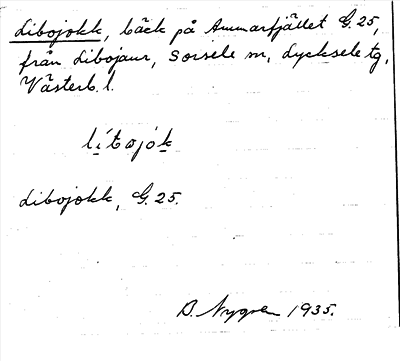 Libojokk, bäck på Ammarfjället G. 25,
från Libojaur, Sorsele sn, Lycksele tg,
Västerb. l.
lítojók
Libojokk, G. 25.
B. Nygren 1935.